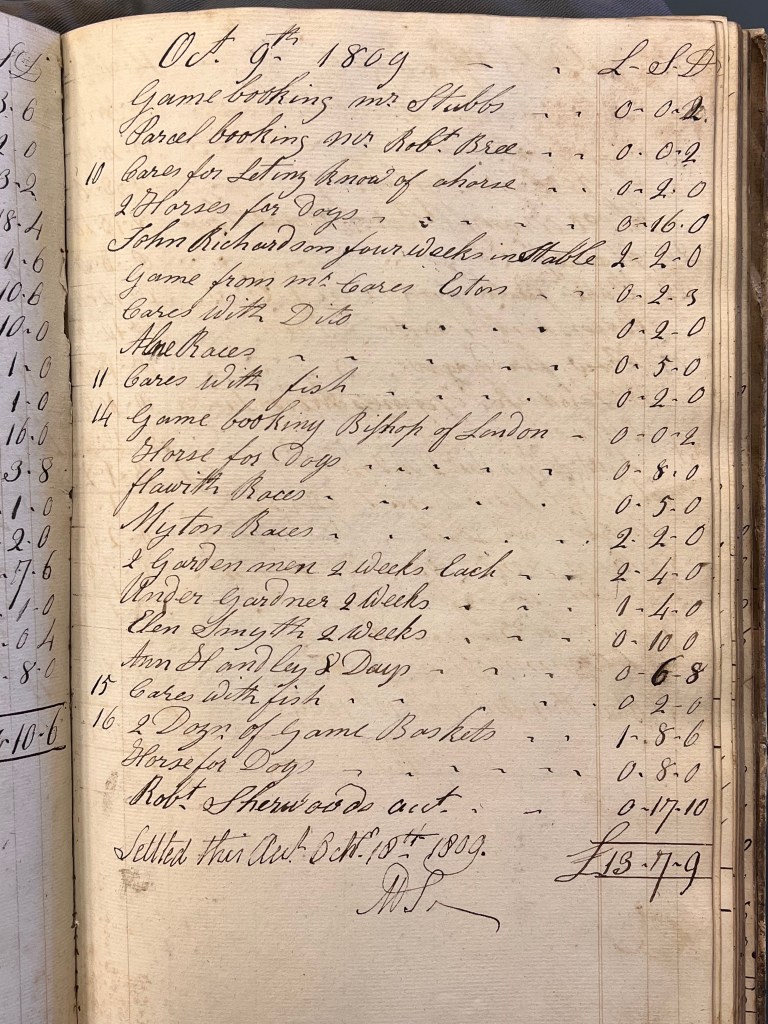 S D
3. 6
2. 0
3. 2
18. 4
1. 6
10. 6
10. 0
1. 0
1. 0
16. 0
3. 8
1. 0
2. 0
7. 6
1. 0
0 4
8. 0
10. 6
Oct. 9th 1809 L- S- D
Game booking mr Stubbs 0- 0- 2
Parcel booking mr Robt. Bree 0- 0- 2
10 Cares for Leting know of ahorse 0- 2- 0
2 Horses for Dogs 0- 16- 0
John Richardson four weeks in Stable 2- 2- 0
Game from mr Cares Eston 0- 2- 3
Cares with Dito 0- 2- 0
Alne Races 0- 5- 0
11 Cares with fish 0- 2- 0
14 Game booking Bishop of London 0- 0- 2
Horse for Dogs 0- 8- 0
flawith Races 0- 5- 0
Myton Races 2- 2- 0
2 Garden men 2 weeks Each 2- 4- 0
Under Gardner 2 Weeks 1- 4- 0
Elen Smyth 2 weeks 0- 10 0
Ann Handley 8 Days 0- 6- 8
15 Cares with fish 0 2- 0
16 2 Dozn. of Game Baskets 1- 8- 6
Horse for Dogs 0- 8- 0
Robt. Sherwoods acct. 0- 17- 10
Settled this Acct. Octr. 18th 1809. £13- 7- 9